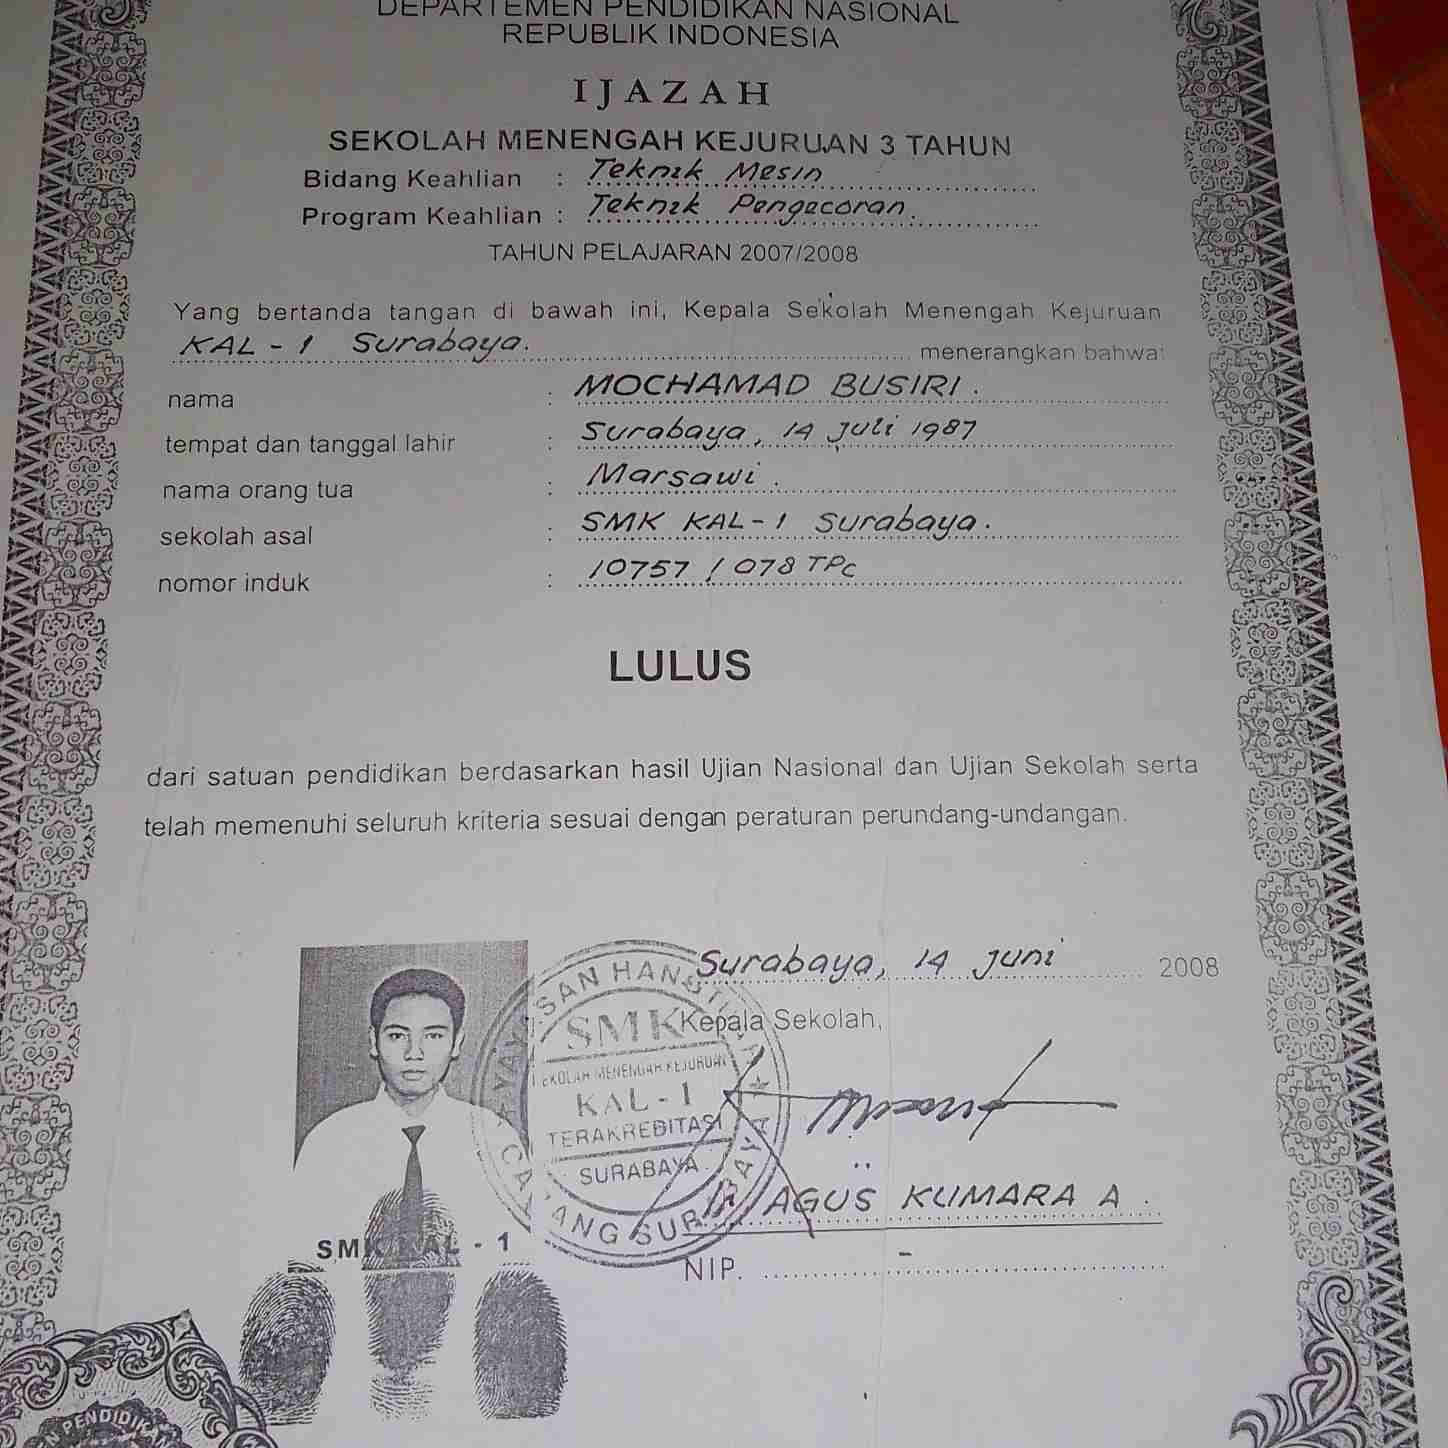 DEPARTEMEN PENDIDIKAN NASIONAL
REPUBLIK INDONESIA
IJAZAH
SEKOLAH MENENGAH KEJURUAN 3 TAHUN
Bidang Keahlian : Teknik Mesin
Program Keahlian : Teknik Pengecoran.
TAHUN PELAJARAN 2007/2008
Yang bertanda tangan di bawah ini, Kepala Sekolah Menengah Kejuruan
KAL - 1 Surabaya. menerangkan bahwa:
nama : MOCHAMAD BUSIRI.
tempat dan tanggal lahir : Surabaya, 14 Juli 1987
nama orang tua : Marsawi.
sekolah asal : SMK KAL - 1 Surabaya.
nomor induk : 10757 / 078 TPC
LULUS
dari satuan pendidikan berdasarkan hasil Ujian Nasional dan Ujian Sekolah serta
telah memenuhi seluruh kriteria sesuai dengan peraturan perundang-undangan.
Surabaya, 14 Juni 2008
Kepala Sekolah,
SMK
SEKOLAH MENENGAH KEJURUAN
KAL - 1
TERAKREDITASI
SURABAYA
AGUS KUMARA A.
SMK KAL - 1
NIP. -
PENDIDIK